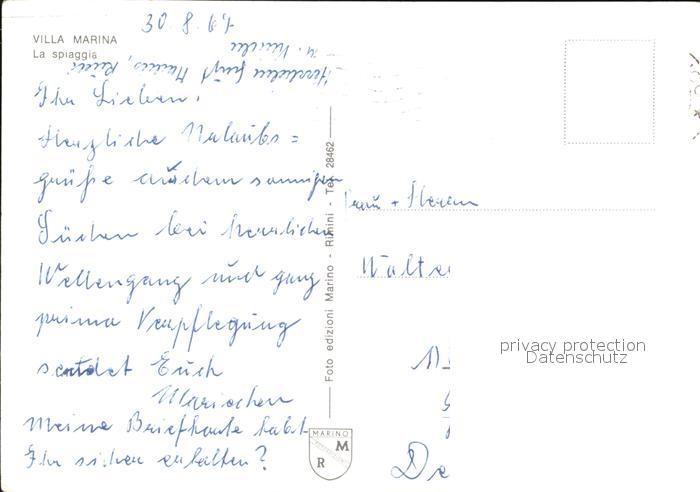 30.8.61
VILLA MARINA
La spiaggia
Ihr Lieben,
Herzliche Urlaubs=
grüße aus dem sonnigen
Süden bei herrlichen
Wellengang und ganz
prima Verpflegung
sendet Euch
Mariechen
Meine Briefkarte habt
Ihr sicher erhalten?
Herzlichen Gruß
u.
Foto edizioni Marino - Rimini - Tel. 28462
MARINO
M
R
+
Walte
De
privacy protection
Datenschutz